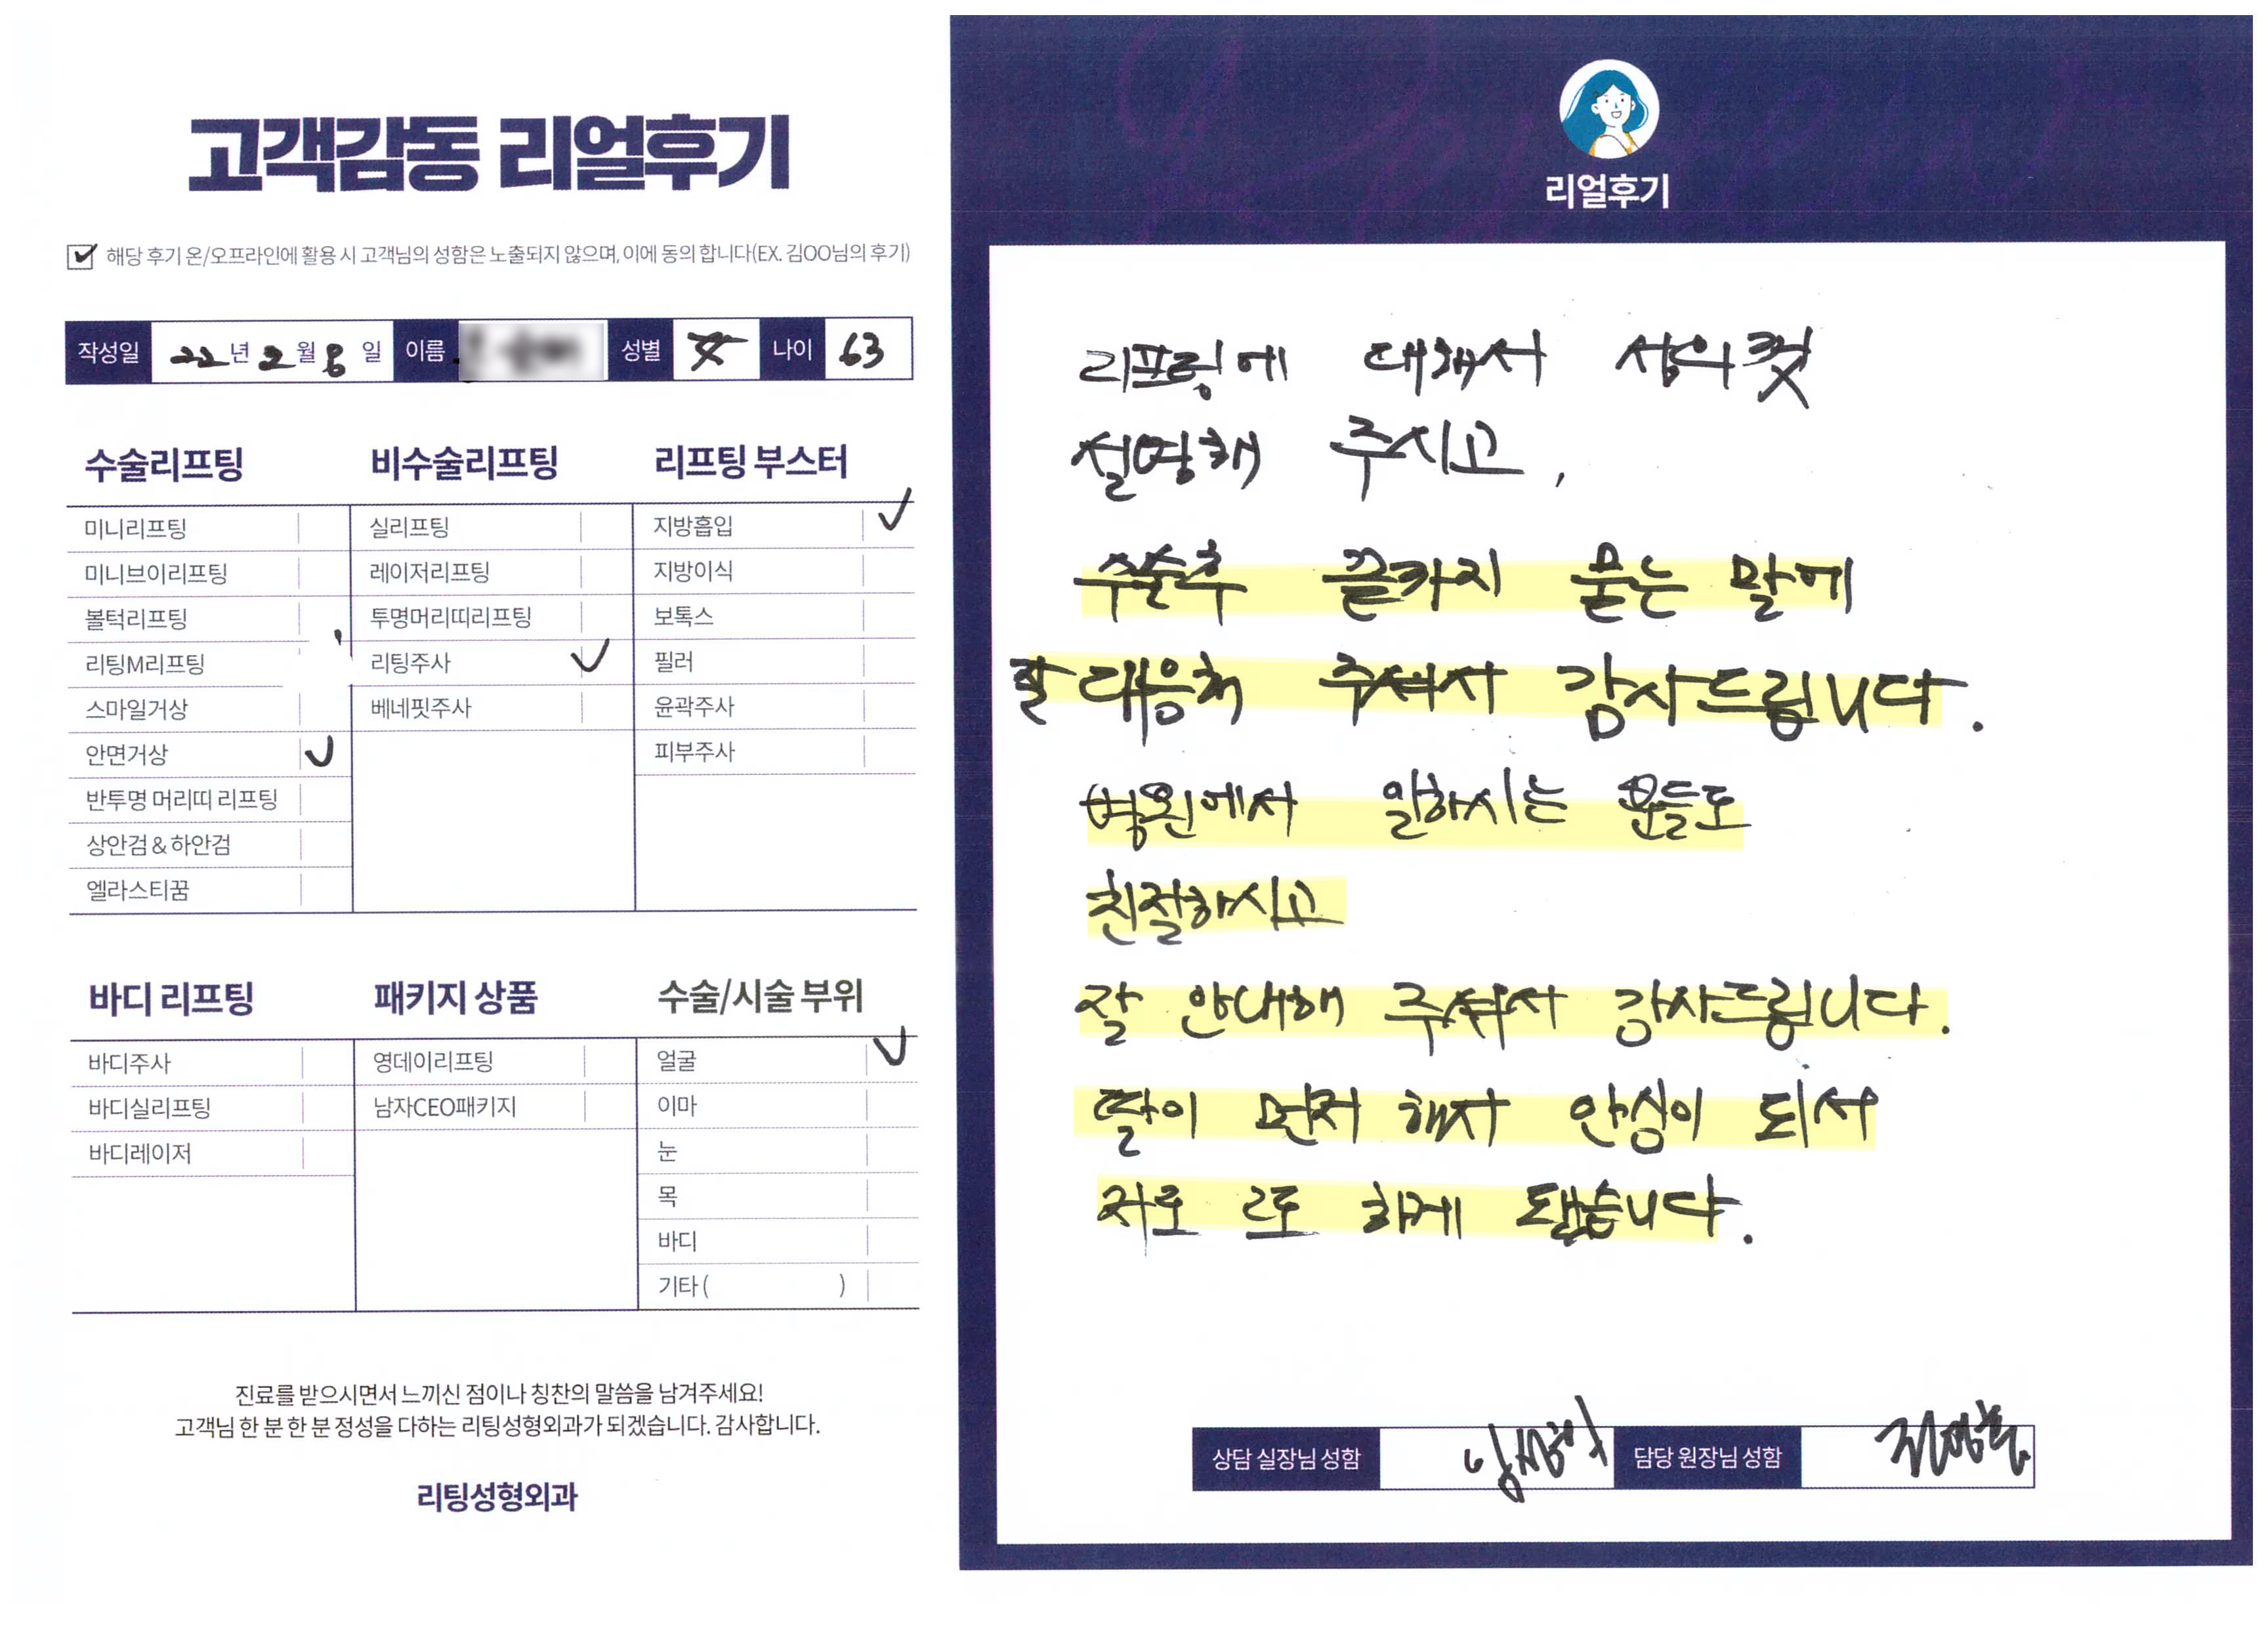 고객감동 리얼후기
해당 후기 온/오프라인에 활용 시 고객님의 성함은 노출되지 않으며, 이에 동의 합니다(EX. 김OO님의 후기)
작성일 22년 2월 8일 이름 성별 여 나이 63
수술리프팅 비수술리프팅 리프팅 부스터
미니리프팅 실리프팅 지방흡입
미니브이리프팅 레이저리프팅 지방이식
볼턱리프팅 투명머리띠리프팅 보톡스
리팅M리프팅 리팅주사 필러
스마일거상 베네핏주사 윤곽주사
안면거상 피부주사
반투명 머리띠 리프팅
상안검 & 하안검
엘라스티꿈
바디 리프팅 패키지 상품 수술/시술 부위
바디주사 영데이리프팅 얼굴
바디실리프팅 남자CEO패키지 이마
바디레이저 눈
목
바디
기타 ( )
진료를 받으시면서 느끼신 점이나 칭찬의 말씀을 남겨주세요!
고객님 한 분 한 분 정성을 다하는 리팅성형외과가 되겠습니다. 감사합니다.
리팅성형외과
리얼후기
리프링에 대해서 성의껏
설명해 주시고,
수술후 끝까지 묻는 말에
잘 대응해 주셔서 감사드립니다.
병원에서 일하시는 분들도
친절하시고
잘 안내해 주셔서 감사드립니다.
딸이 먼저 해서 안심이 되서
저도 하게 됐습니다.
상담 실장님 성함 담당 원장님 성함